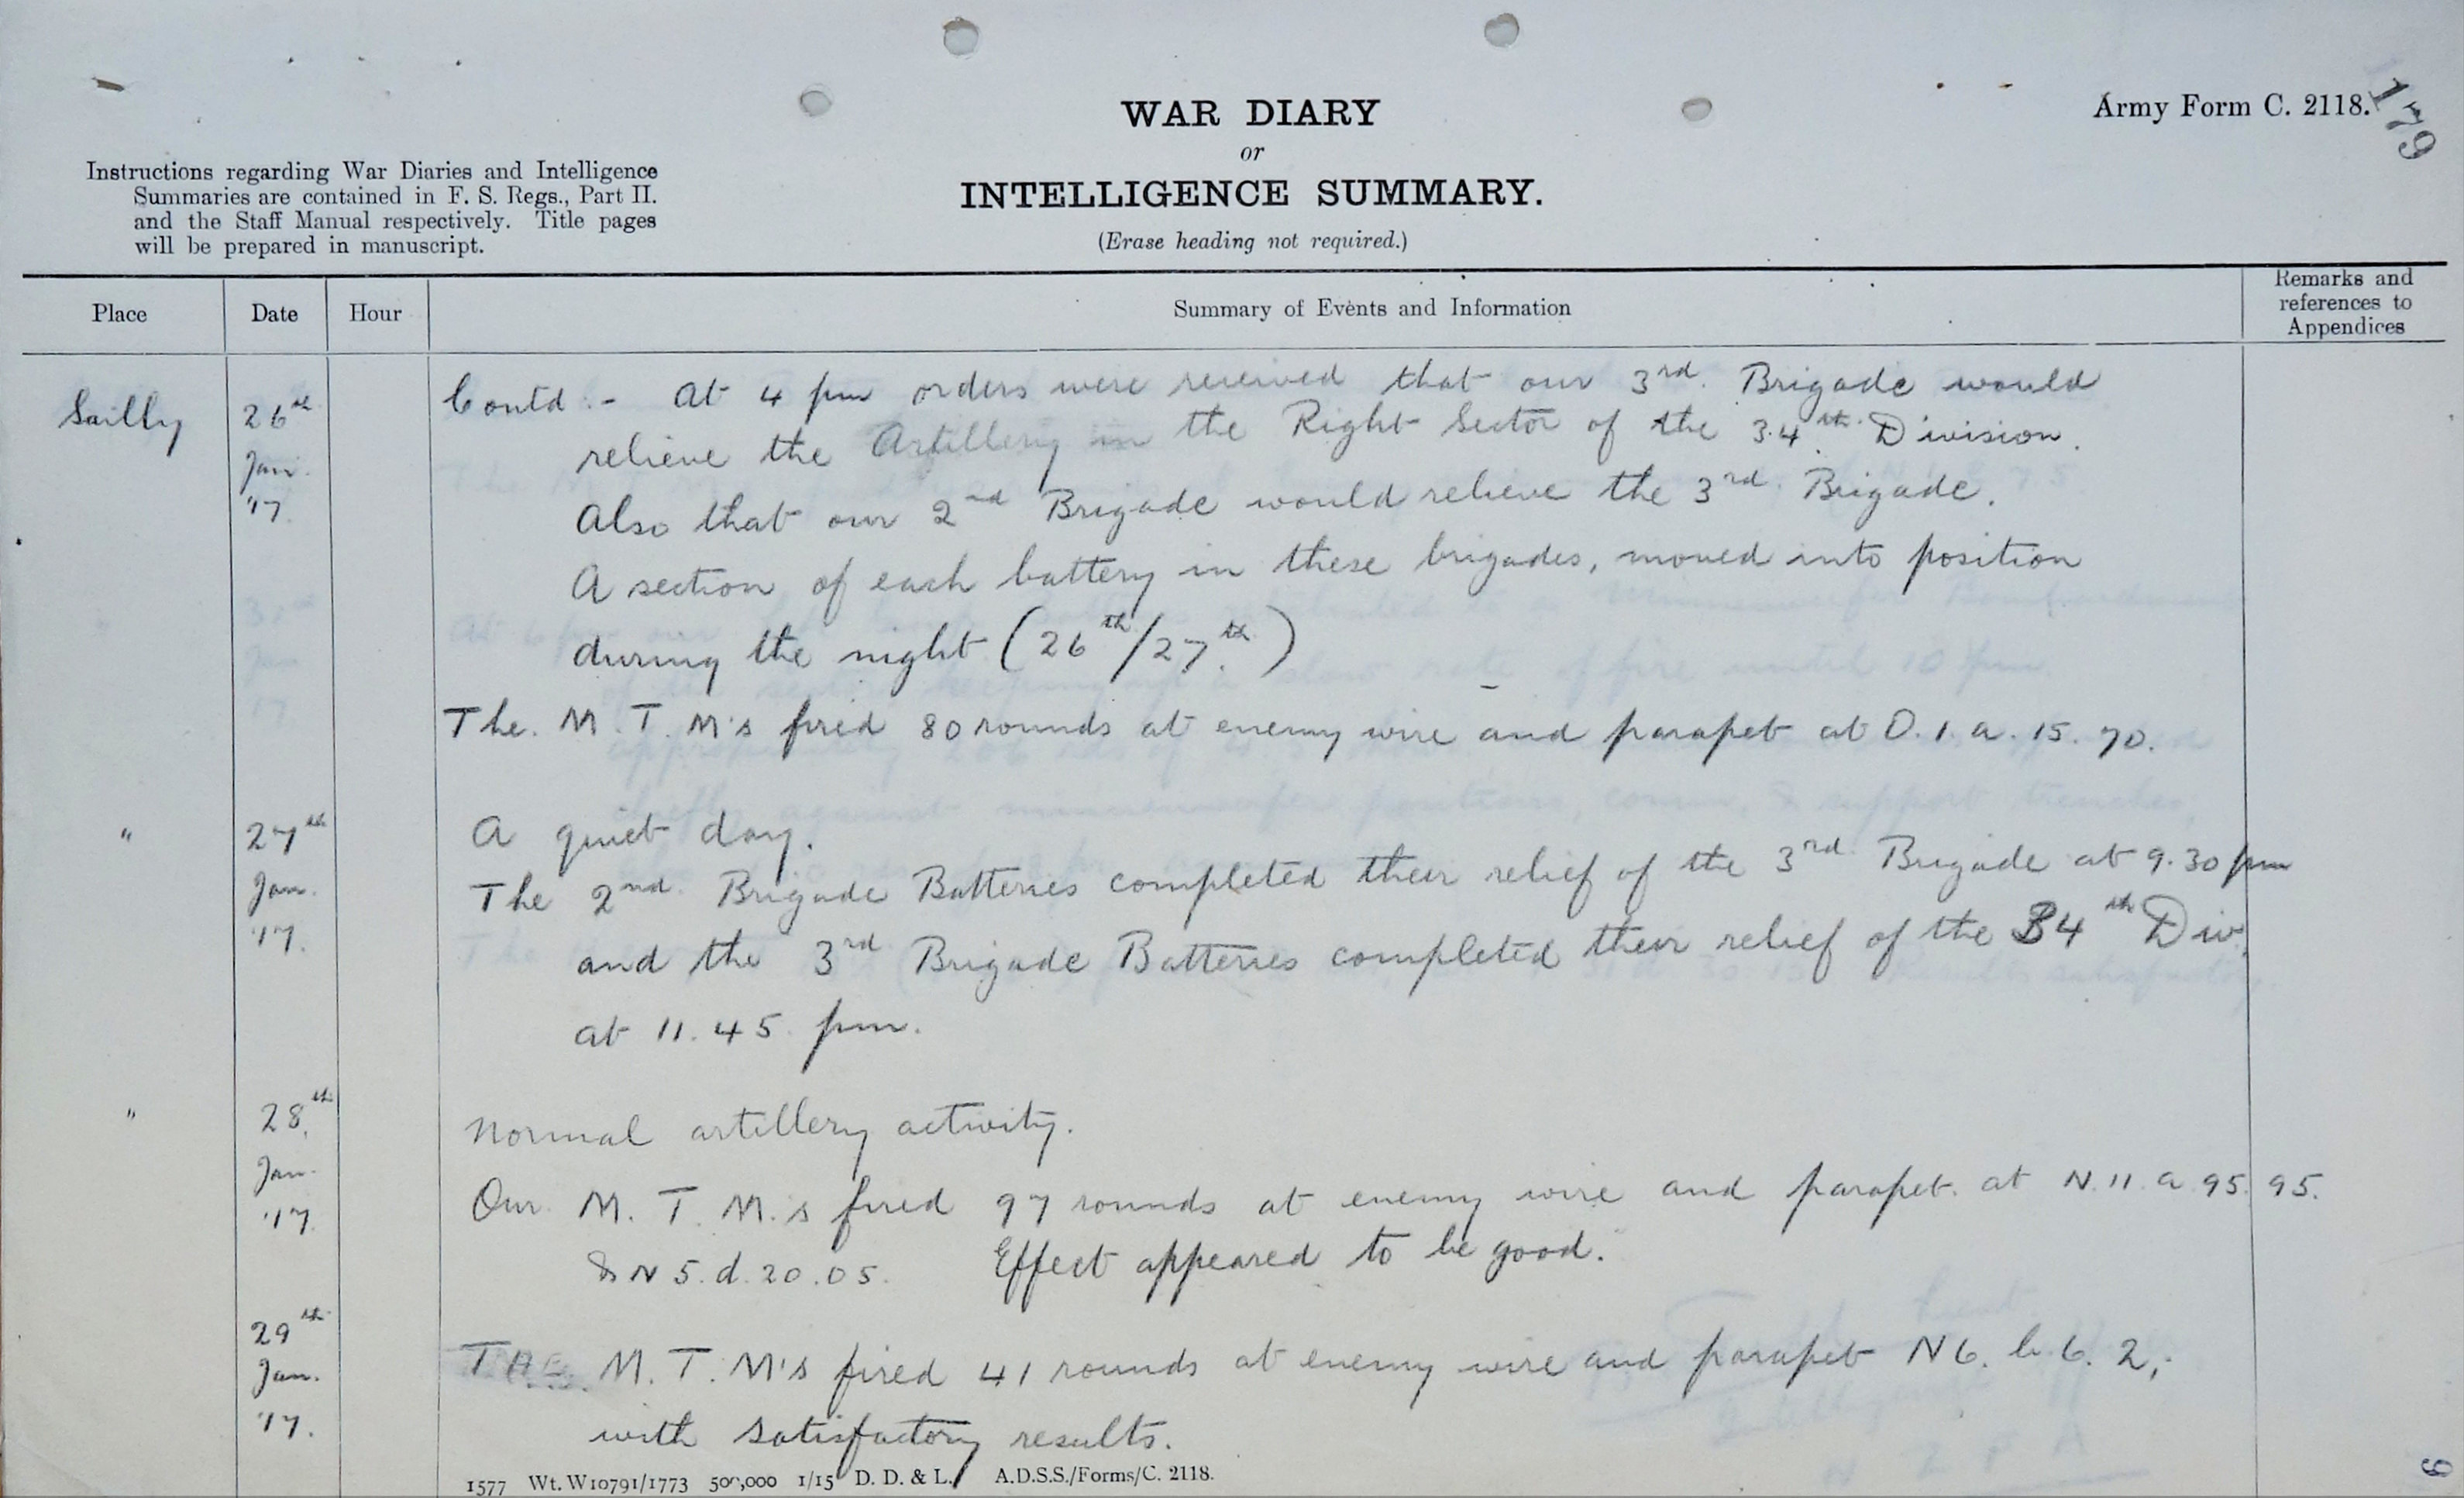 WAR DIARY
or
INTELLIGENCE SUMMARY.
(Erase heading not required.)
Army Form C. 2118.
179
Instructions regarding War Diaries and Intelligence
Summaries are contained in F. S. Regs., Part II.
and the Staff Manual respectively. Title pages
will be prepared in manuscript.
Place Date Hour Summary of Events and Information Remarks and references to Appendices
Sailly 26th Jan. '17. Contd :- At 4 pm orders were received that our 3rd. Brigade would
relieve the Artillery in the Right Sector of the 34th. Division.
Also that our 2nd Brigade would relieve the 3rd. Brigade.
A section of each battery in these brigades, moved into position
during the night (26th/27th.)
The. M. T. M's fired 80 rounds at enemy wire and parapet at O. 1. a. 15. 70.
" 27th Jan. '17. A quiet day.
The 2nd. Brigade Batteries completed their relief of the 3rd. Brigade at 9.30 pm
and the 3rd Brigade Batteries completed their relief of the 34th Div.
at 11.45 pm.
" 28th. Jan. '17. Normal artillery activity.
Our M. T. M.s fired 97 rounds at enemy wire and parapet. at N. 11. a 95. 95.
& N 5. d. 20. 05. Effect appeared to be good.
29th Jan. '17. THE. M. T. M's fired 41 rounds at enemy wire and parapet N 6. b. 6. 2,
with satisfactory results.
1577 Wt. W10791/1773 500,000 1/15 D. D. & L. A.D.S.S./Forms/C. 2118.